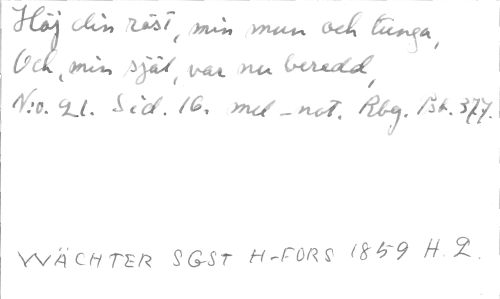 Höj din röst, min mun och tunga,
Och, min själ, var nu beredd,
N:o. 21. Sid. 16. mel-not. Rbg. Bk. 377.
WÄCHTER SGST H-FORS 1859 H. 2.